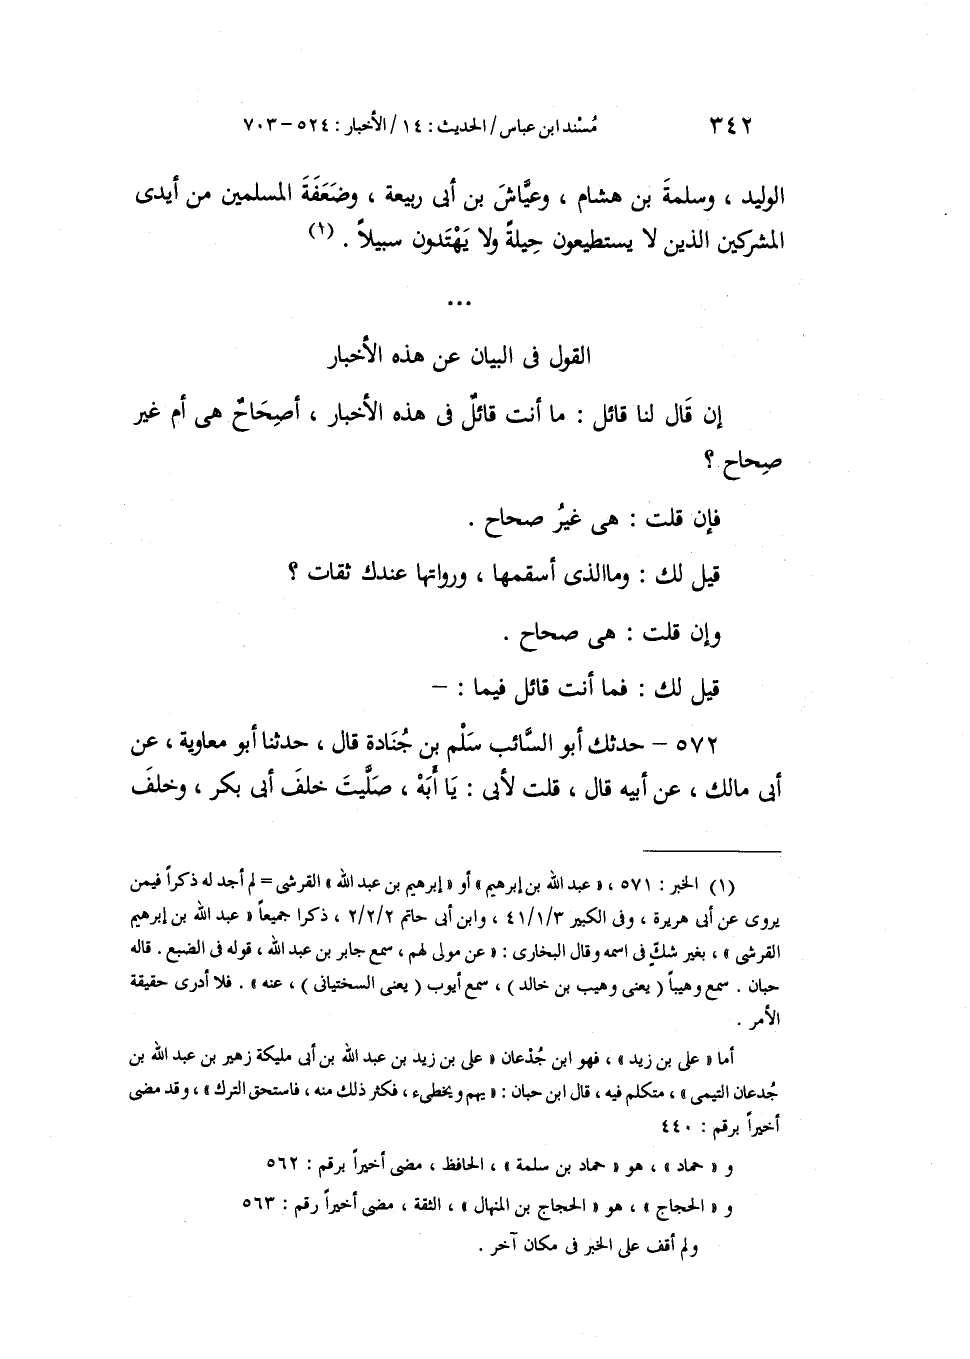 ٣٤٢ مُسْند ابن عباس / الحديث : ١٤ / الأخبار : ٥٢٤ – ٧٠٣
الوليد ، وسلمةَ بن هشام ، وعيَّاشَ بن أبى ربيعة ، وضَعَفَةَ المسلمين من أيدى
المشركين الذين لا يستطيعون حِيلةً ولا يَهْتَدون سبيلاً . (١)
...
القول فى البيان عن هذه الأخبار
إن قَال لنا قائل : ما أنت قائلٌ فى هذه الأخبار ، أصِحَاحٌ هى أم غير
صِحاح ؟
فإن قلت : هى غيرُ صحاح .
قيل لك : وما الذى أسقمها ، ورواتها عندك ثقات ؟
وإن قلت : هى صحاح .
قيل لك : فما أنت قائل فيما : –
٥٧٢ – حدثك أبو السَّائب سَلْم بن جُنَادة قال ، حدثنا أبو معاوية ، عن
أبى مالك ، عن أبيه قال ، قلت لأبى : يَا أَبَهْ ، صَلَّيتَ خلفَ أبى بكر ، وخلفَ
(١) الخبر : ٥٧١ ، « عبد الله بن إبرهيم » أو « إبرهيم بن عبد الله » القرشى = لم أجد له ذكراً فيمن
يروى عن أبى هريرة ، وفى الكبير ٤١/١/٣ ، وابن أبى حاتم ٢/٢/٢ ، ذكرا جميعاً « عبد الله بن إبرهيم
القرشى » ، بغير شكٍّ فى اسمه وقال البخارى : « عن مولى لهم ، سمع جابر بن عبد الله ، قوله فى الضبع . قاله
حبان . سمع وهيباً ( يعنى وهيب بن خالد ) ، سمع أيوب ( يعنى السختيانى ) ، عنه » . فلا أدرى حقيقة
الأمر .
أما « على بن زيد » ، فهو ابن جُدْعان « على بن زيد بن عبد الله بن أبى مليكة زهير بن عبد الله بن
جُدعان التيمى » ، متكلم فيه ، قال ابن حبان : « يهم ويخطىء ، فكثر ذلك منه ، فاستحق الترك » ، وقد مضى
أخيراً برقم : ٤٤٠
و « حماد » ، هو « حماد بن سلمة » ، الحافظ ، مضى أخيراً برقم : ٥٦٢
و « الحجاج » ، هو « الحجاج بن المنهال » ، الثقة ، مضى أخيراً رقم : ٥٦٣
ولم أقف على الخبر فى مكان آخر .